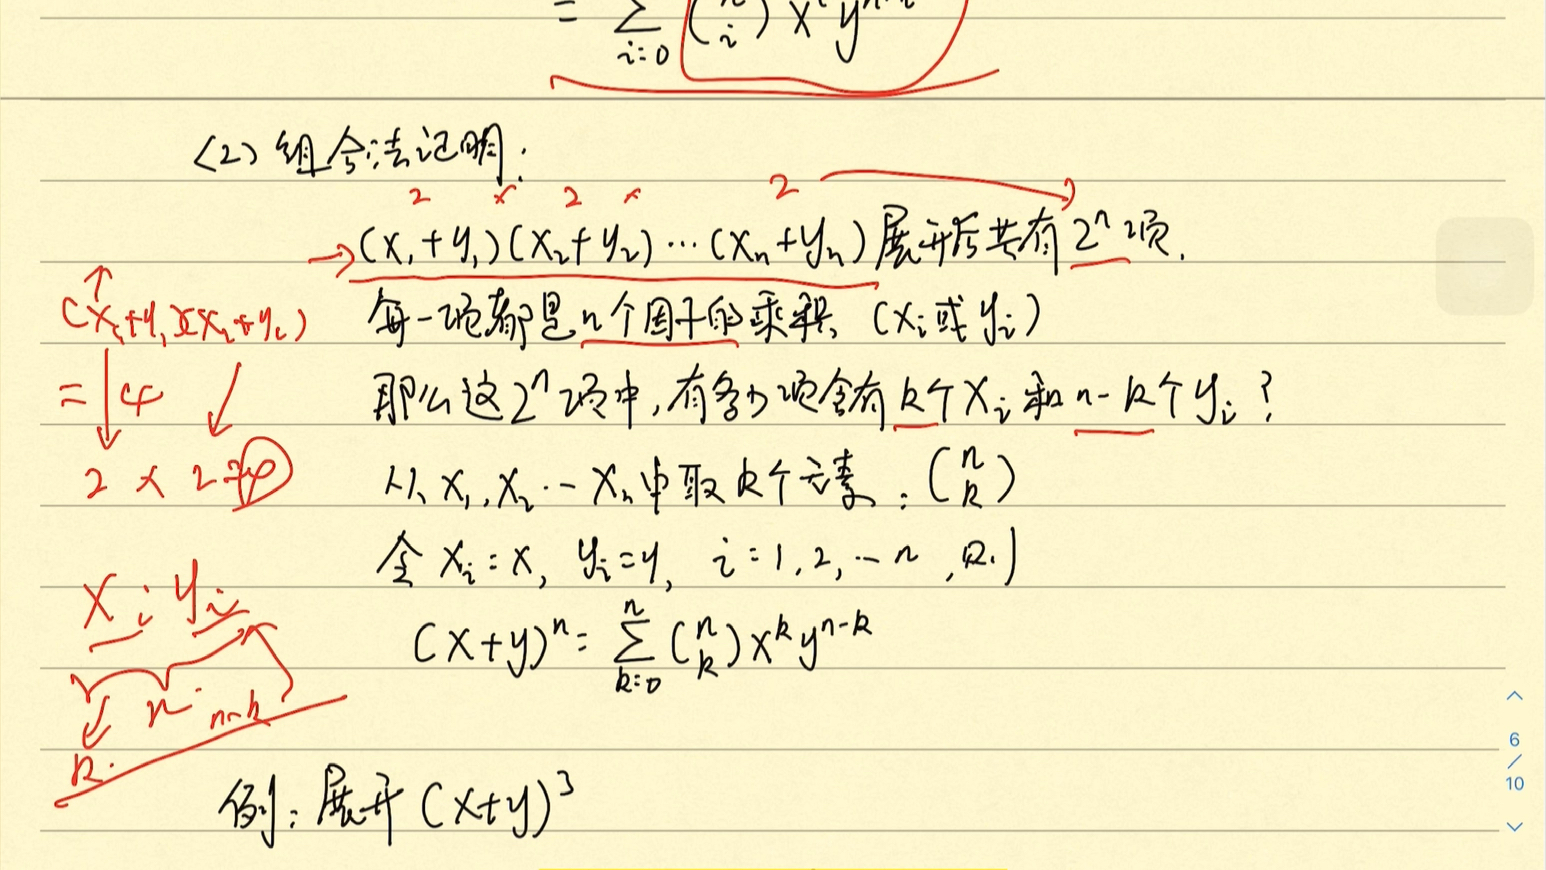 = Σ i=0 (n i) x^i y^n-i
(2) 组合法证明:
2 × 2 × 2
(x₁+y₁)(x₂+y₂)···(xₙ+yₙ) 展开后共有 2ⁿ 项.
(x₁+y₁)(x₂+y₂)
每一项都是n个因子的乘积 (xᵢ或yᵢ)
= 4
那么这2ⁿ项中,有多少项含有k个xᵢ和n-k个yᵢ?
2 × 2 = 4
从x₁,x₂···xₙ中取k个元素: (n k)
令 xᵢ=x, yᵢ=y, i=1,2,···n, 则
xᵢ yᵢ
(x+y)ⁿ= Σ k=0 n (n k) x^k y^n-k
n n-k
k
例: 展开 (x+y)³
6
/
10